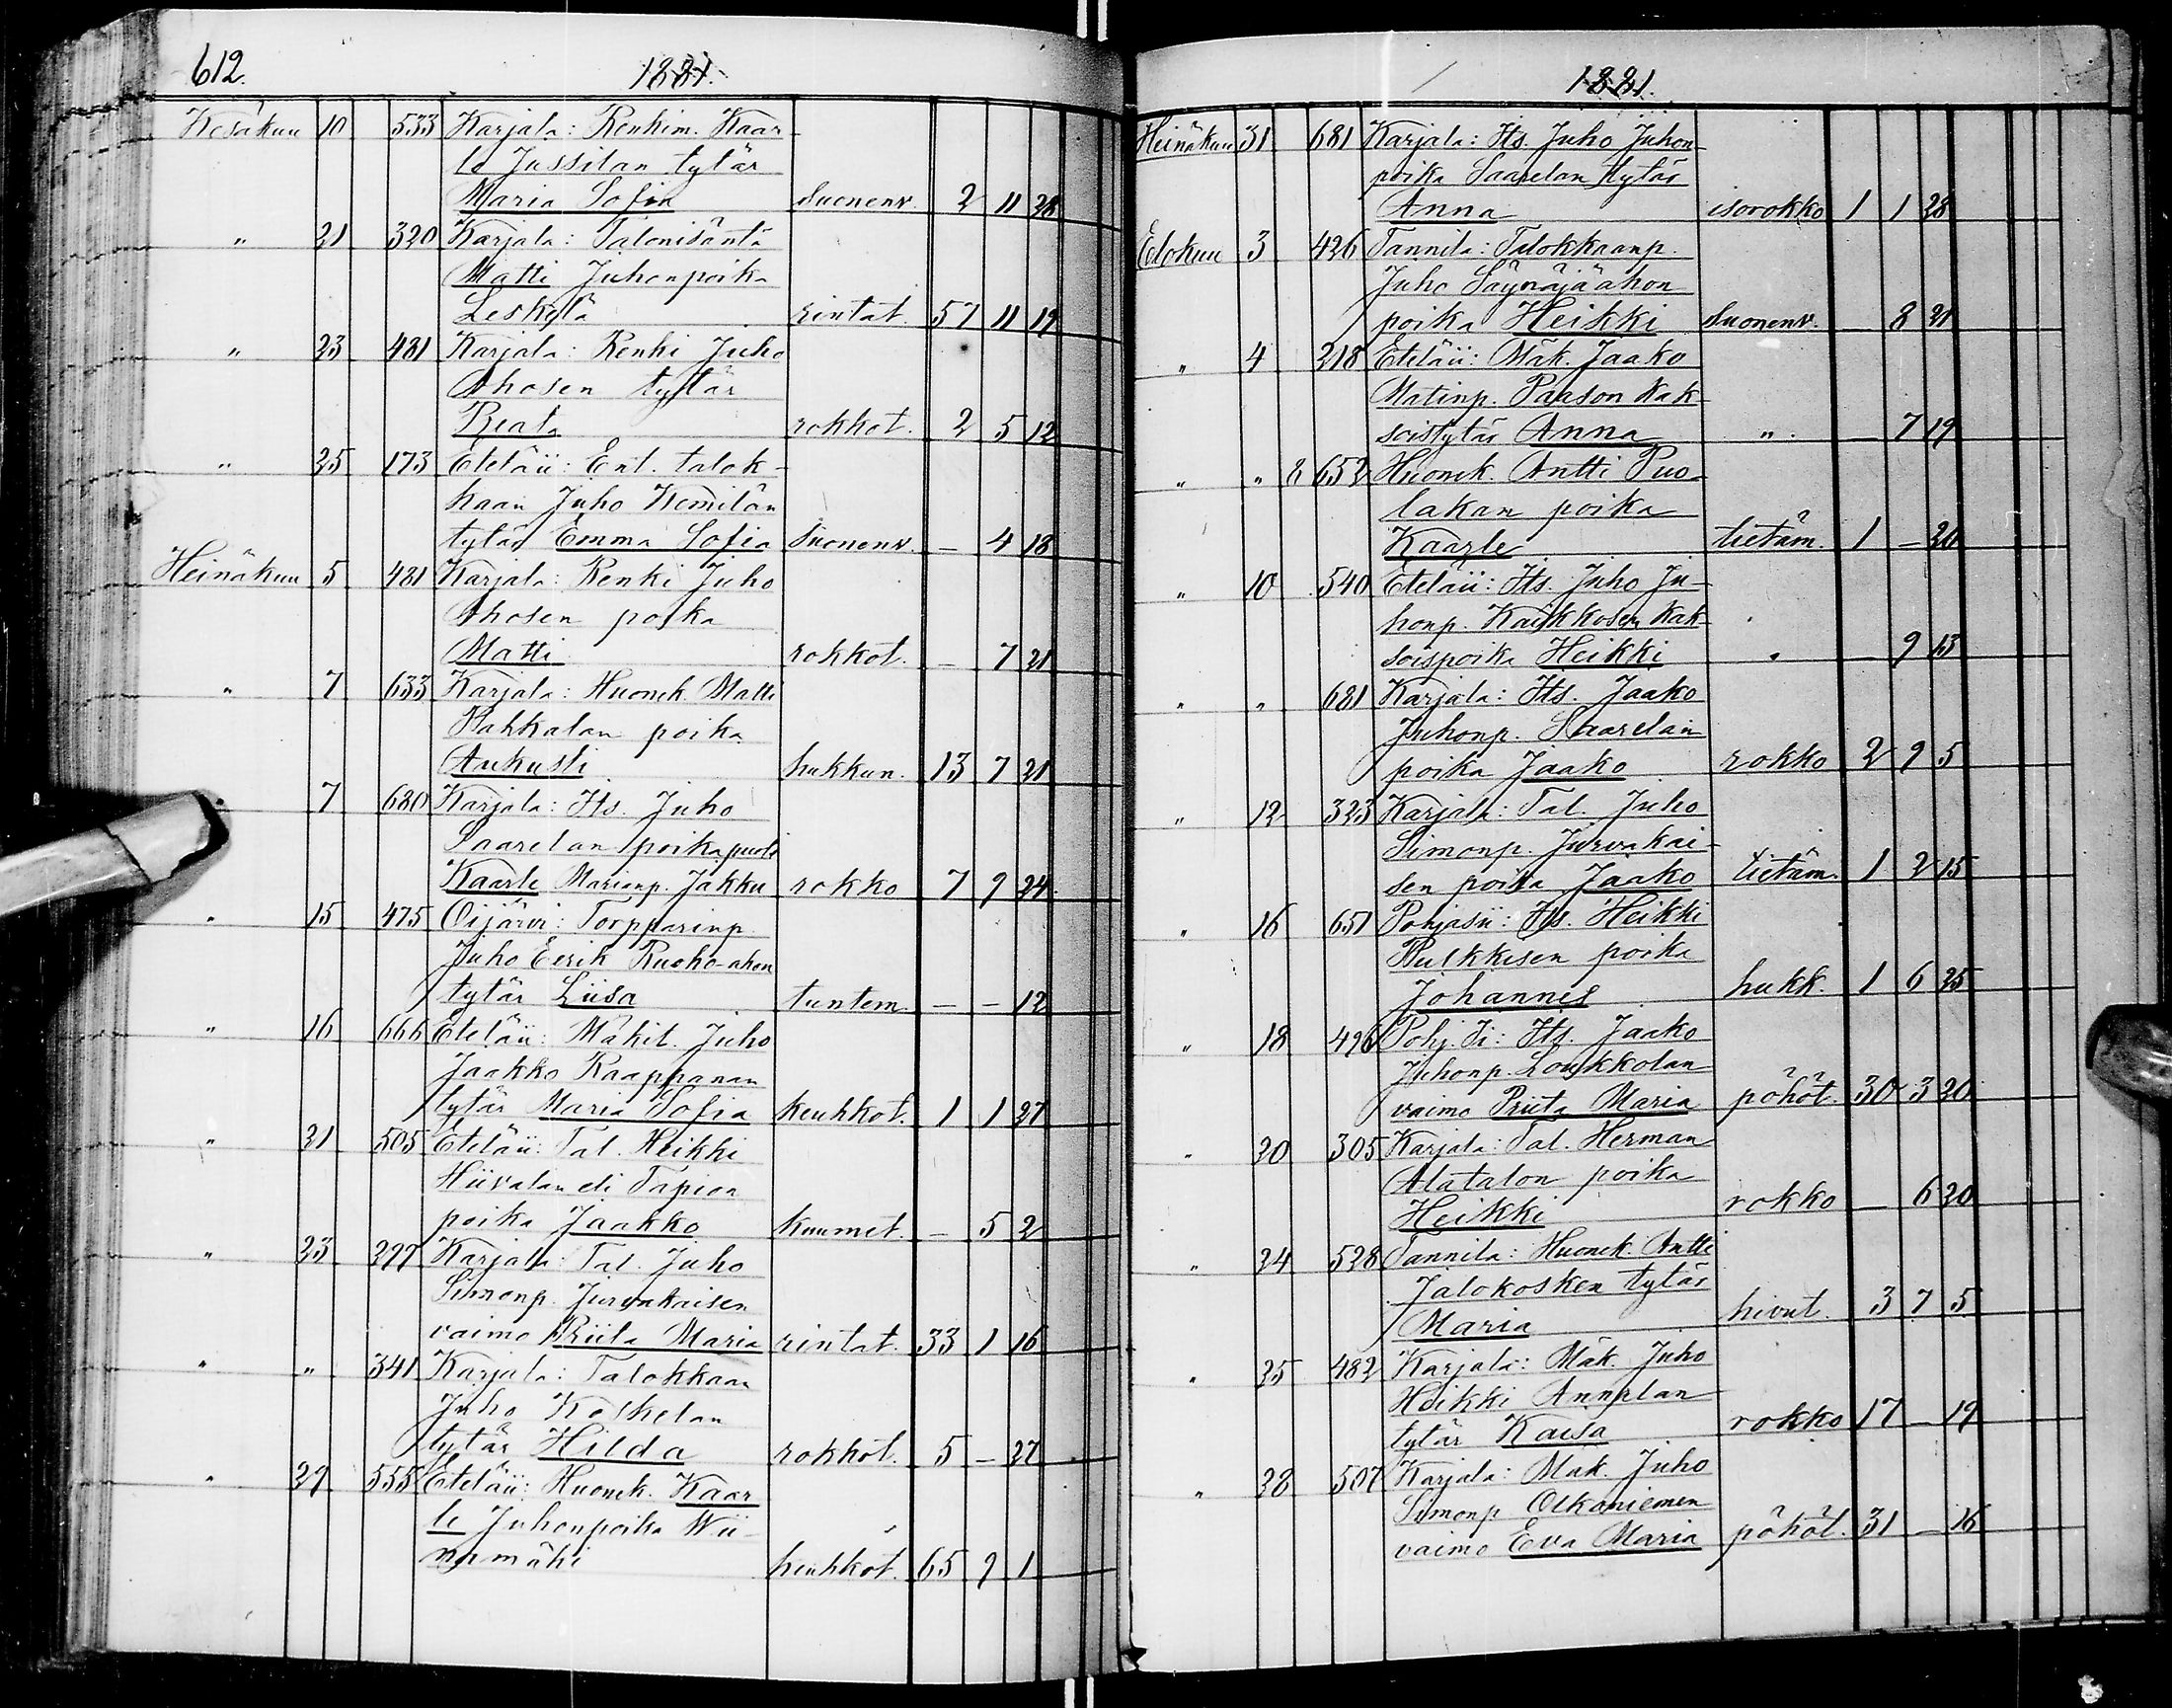 612.
1881.
Kesäkuu 10 533 Karjala: Renkim. Kaar-
lo Jussilan tytär
Maria Sofia Suonenv. 2 11 28
" 21 320 Karjala: Talonisäntä
Matti Juhonpoika
Leskelä rintat. 57 11 19
" 23 481 Karjala: Renki Juho
Ahosen tytär
Reeta rokkot. 2 5 12
" 25 173 Eteläii: Ent. talok-
kaan Juho Kemilän
tytär Emma Sofia Suonenv. — 4 18
Heinäkuu 5 481 Karjala: Renki Juho
Ahosen poika
Matti rokkot. — 7 21
" 7 633 Karjala: Huonek. Matti
Pakkalan poika
Aukusti hukkun. 13 7 21
" 7 680 Karjala: Its. Juho
Saarelan poikapuoli
Kaarle Marianp. Jakku rokko 7 9 24
" 15 475 Oijärvi: Torpparinp.
Juho Eerik Ruoho-ahon
tytär Liisa tuntem. — — 12
" 16 666 Eteläii: Mäkit. Juho
Jaakko Kaappanan
tytär Maria Sofia keuhkot. 1 1 27
" 21 505 Eteläii: Tal. Heikki
Hiivalan eli Tapion
poika Jaakko kuumet. — 5 2
" 23 297 Karjala: Tal. Juho
Simonp. Jurvakaisen
vaimo Priita Maria rintat. 33 1 16
" " 341 Karjala: Talokkaan
Juho Koskelan
tytär Hilda rokkot. 5 — 27
" 29 555 Eteläii: Huonek. Kaar
le Juhonpoika Wii-
namäki keuhkot. 65 9 1
1881.
Heinäkuu 31 681 Karjala: Its. Juho Juhon-
poika Saarelan tytär
Anna isorokko 1 1 28
Elokuu 3 426 Tannila: Talokkaanp.
Juho Säynäjäahon
poika Heikki Suonenv. — 8 21
" 4 218 Eteläii: Mäk. Jaako
Matinp. Paason kak-
soistytär Anna " — 7 19
" " 8 652 Huonek. Antti Puo-
lakan poika
Kaarle tietäm. 1 — 20
" 10 540 Eteläii: Its. Juho Ju-
honp. Kaikkosen kak-
soispoika Heikki " — 9 13
" " 681 Karjala: Its. Jaako
Juhonp. Saarelan
poika Jaako rokko 2 9 5
" 12 323 Karjala: Tal. Juho
Simonp. Jurvakai-
sen poika Jaako tietäm. 1 2 15
" 16 651 Pohjasii: Its. Heikki
Pulkkisen poika
Johannes hukk. 1 6 25
" 18 496 Pohj. Ii: Its. Jaako
Juhonp. Loukkolan
vaimo Priita Maria pöhöt. 30 3 20
" 20 305 Karjala: Tal. Herman
Alatalon poika
Heikki rokko — 6 20
" 24 528 Tannila: Huonek. Antti
Jalokosken tytär
Maria hivut. 3 7 5
" 25 482 Karjala: Mäk. Juho
Heikki Annalan
tytär Kaisa rokko 17 — 19
" 28 507 Karjala: Mäk. Juho
Simonp. Olkoniemen
vaimo Eva Maria pöhöt. 31 — 16